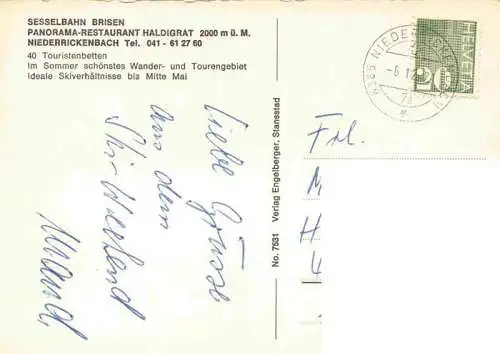 SESSELBAHN BRISEN
PANORAMA-RESTAURANT HALDIGRAT 2000 m ü. M.
NIEDERRICKENBACH Tel. 041 - 61 27 60
40 Touristenbetten
Im Sommer schönstes Wander- und Tourengebiet
Ideale Skiverhältnisse bis Mitte Mai
Liebe Grüsse
aus dem
No. 7531 Verlag Engelberger, Stansstad
HELVETIA
Frl.
M
H
4